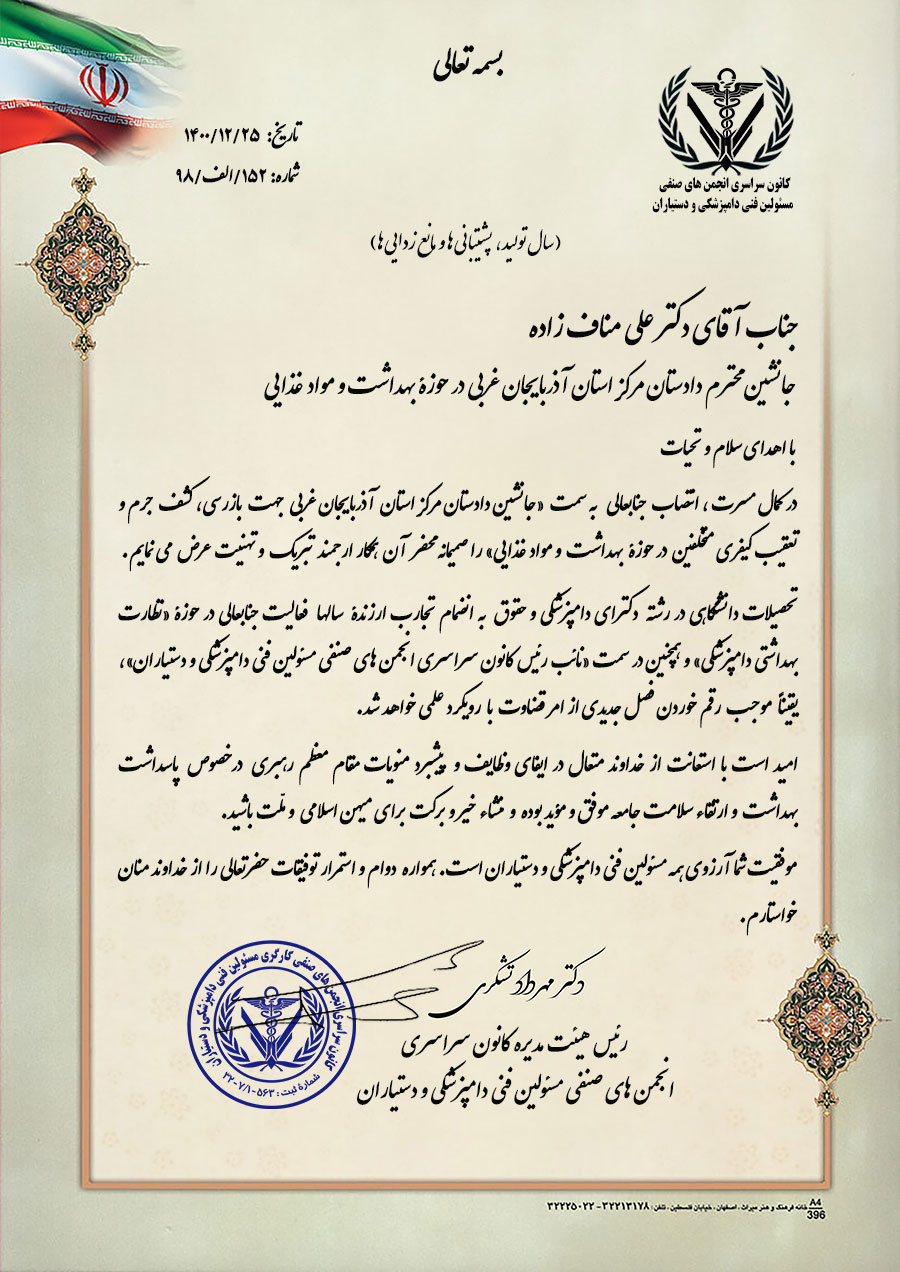 بسمه تعالی
کانون سراسری انجمن های صنفی
مسئولین فنی دامپزشکی و دستیاران
تاریخ: ۱۴۰۰/۱۲/۲۵
شماره: ۱۵۲/الف/۹۸
(سال تولید، پشتیبانی ها و مانع زدایی ها)
جناب آقای دکتر علی مناف زاده
جانشین محترم دادستان مرکز استان آذربایجان غربی در حوزهٔ بهداشت و مواد غذایی
با اهدای سلام و تحیات
در کمال مسرت، انتصاب جنابعالی به سمت «جانشین دادستان مرکز استان آذربایجان غربی جهت بازرسی، کشف جرم و
تعقیب کیفری متخلفین در حوزهٔ بهداشت و مواد غذایی» را صمیمانه محضر آن همکار ارجمند تبریک و تهنیت عرض می نمایم.
تحصیلات دانشگاهی در رشته دکترای دامپزشکی و حقوق به انضمام تجارب ارزندهٔ سالها فعالیت جنابعالی در حوزهٔ «نظارت
بهداشتی دامپزشکی» و همچنین در سمت «نائب رئیس کانون سراسری انجمن های صنفی مسئولین فنی دامپزشکی و دستیاران»،
یقیناً موجب رقم خوردن فصل جدیدی از امر قضاوت با رویکرد علمی خواهد شد.
امید است با استعانت از خداوند متعال در ایفای وظایف و پیشبرد منویات مقام معظم رهبری درخصوص پاسداشت
بهداشت و ارتقاء سلامت جامعه موفق و مؤید بوده و منشاء خیر و برکت برای میهن اسلامی و ملّت باشید.
موفقیت شما آرزوی همه مسئولین فنی دامپزشکی و دستیاران است. همواره دوام و استمرار توفیقات حضرتعالی را از خداوند منان
خواستارم.
دکتر مهرداد تشکری
رئیس هیئت مدیره کانون سراسری
انجمن های صنفی مسئولین فنی دامپزشکی و دستیاران
کانون سراسری انجمن های صنفی کارگری مسئولین فنی دامپزشکی و دستیاران
شماره ثبت: ۵۶۳-۳۲-۷/۱
خانه فرهنگ و هنر میراث، اصفهان، خیابان فلسطین، تلفن: ۳۲۲۱۳۱۷۸-۳۲۲۲۵۰۲۲
A4
396